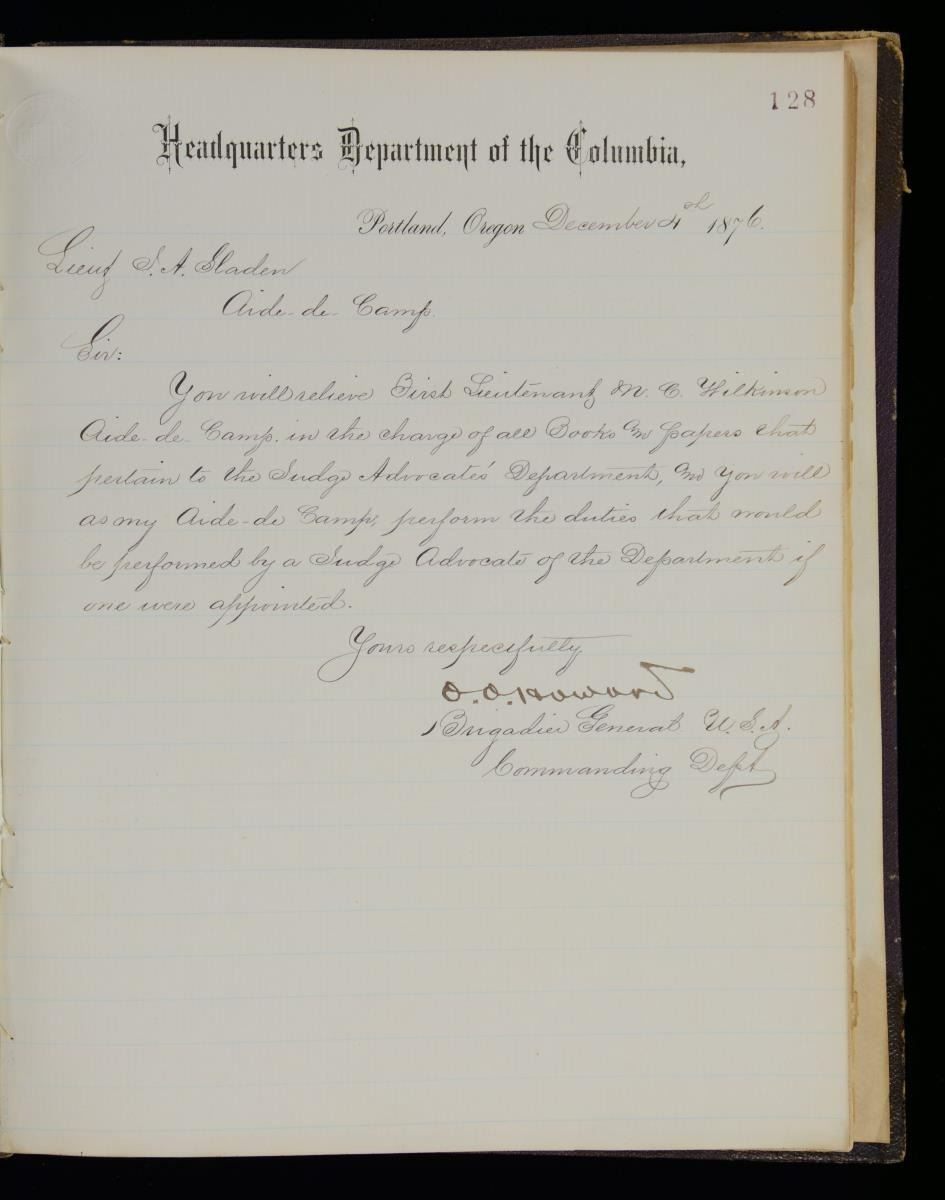 128
Headquarters Department of the Columbia,
Portland, Oregon December 4th 1876.
Lieut J. A. Sladen
Aide-de-Camp.
Sir:
You will relieve First Lieutenant M. C. Wilkinson
Aide-de-Camp. in the charge of all Books and papers that
pertain to the Judge Advocate's Department, and you will
as my Aide-de Camp, perform the duties that would
be performed by a Judge Advocate of the Department if
one were appointed.
Yours respectfully
O. O. Howard
Brigadier General U.S.A.
Commanding Dept